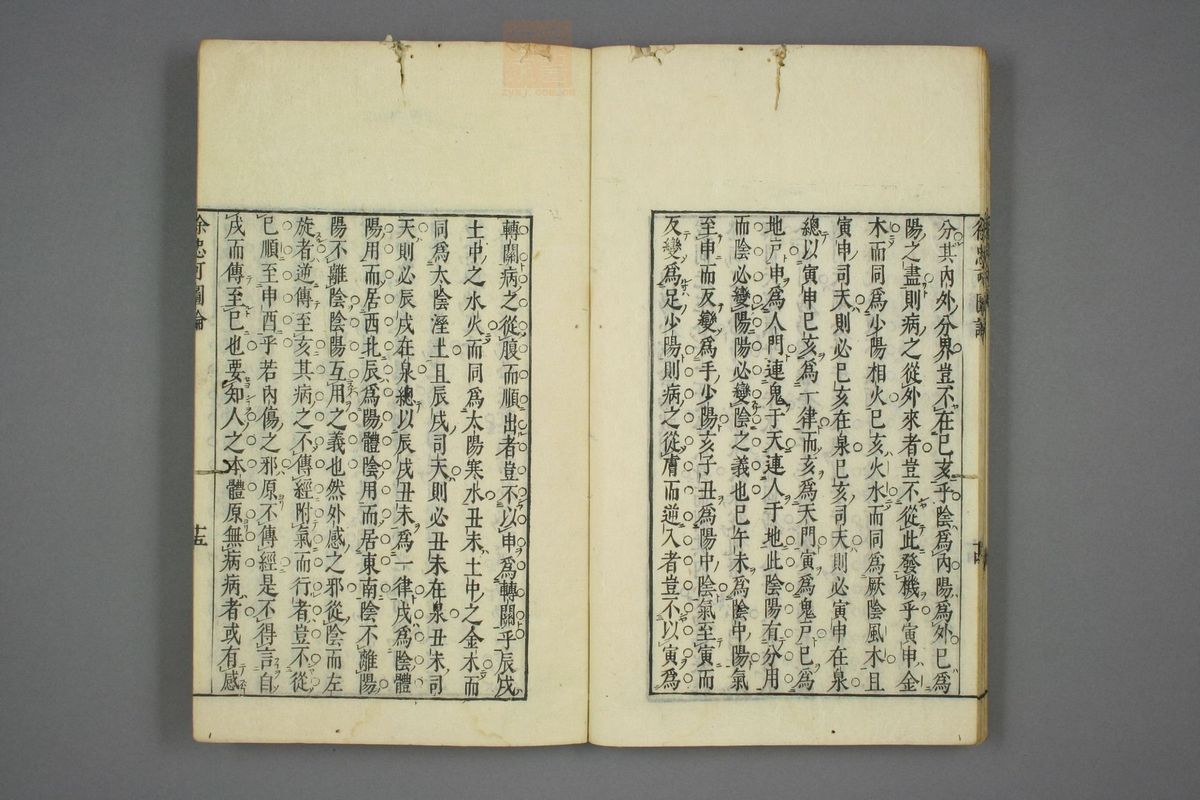 分其內外分界豈不在巳亥乎陰爲內陽爲外巳爲
陽之盡則病之從外來者豈不從此發機乎寅申金
木而同爲少陽相火巳亥火水而同爲厥陰風木且
寅申司天則必巳亥在泉巳亥司天則必寅申在泉
總以寅申巳亥爲一律而亥爲天門寅爲鬼戸巳爲
地戸申爲人門連鬼于天連人于地此陰陽有分用
而陰必變陽陽必變陰之義也巳午未爲陰中陽氣
至申而反變爲手少陽亥子丑爲陽中陰氣至寅而
反變爲足少陽則病之從膚而逆入者豈不以寅爲
轉關病之從腹而順出者豈不以申爲轉關乎辰戌
土中之水火而同爲太陽寒水丑未土中之金木而
同爲太陰溼土且辰戌司天則必丑未在泉丑未司
天則必辰戌在泉總以辰戌丑未爲一律戌爲陰體
陽用而居西北辰爲陽體陰用而居東南陰不離陽
陽不離陰陰陽互用之義也然外感之邪從陰而左
旋者逆傳至亥其病之不傳經附氣而行者豈不從
巳順至申酉乎若內傷之邪原不傳經是不得言自
戌而傳至巳也要知人之本體原無病病者或有感
徐忠可圖論
十五